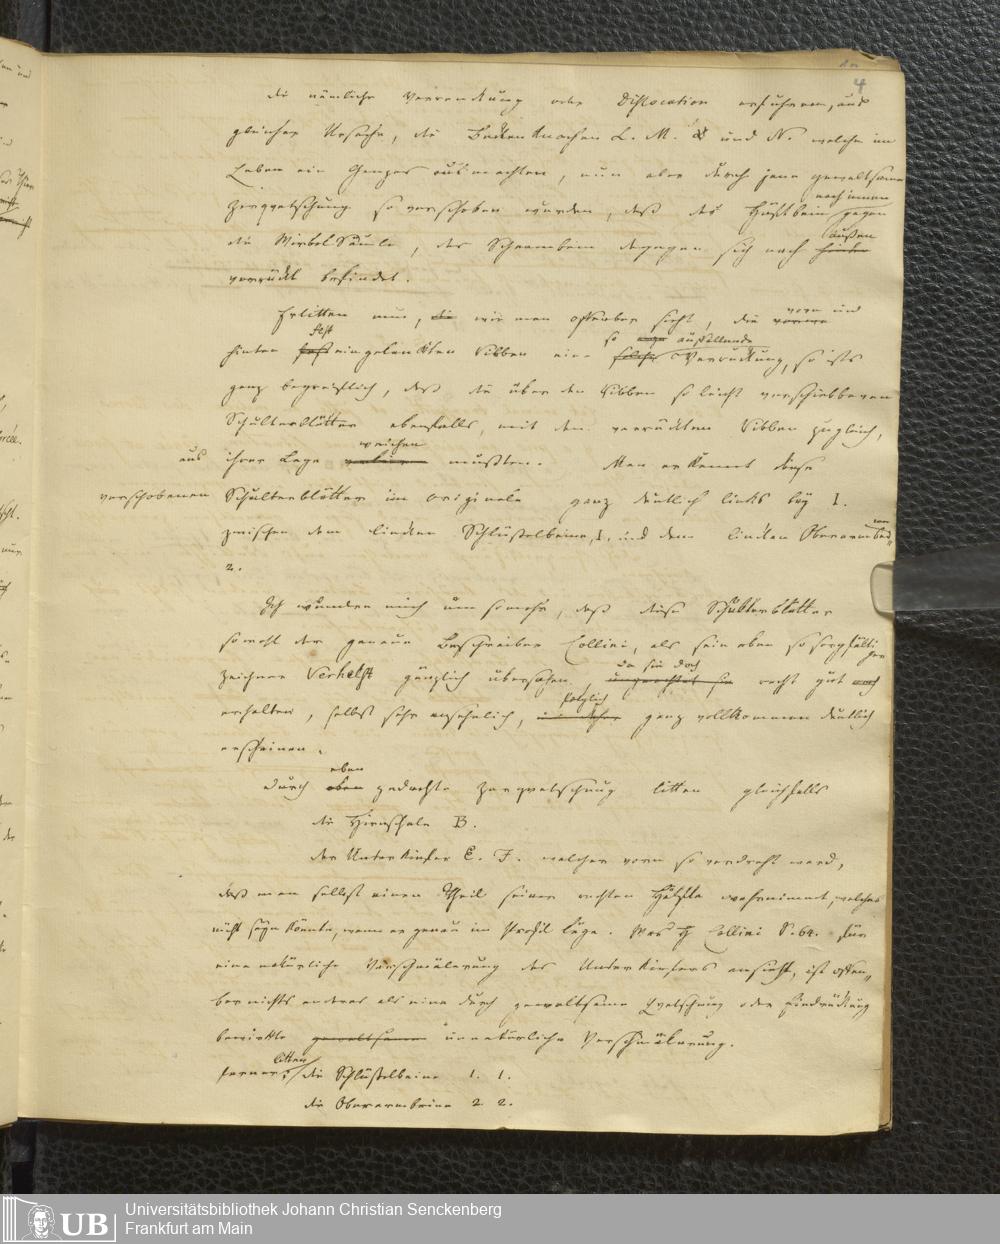 4
die nämliche Verrenkung oder Dislocation erfuhren, aus
gleicher Ursache, die Beckenknochen L. M. & und N. welche im
Leben ein Ganzes ausmachten, nun aber durch jene gewaltsame
nach innen
Zerquetschung so verschoben wurden, daß das Hüftbein gegen
außen
die Wirbelsäule, das Schaambein dagegen sich nach hinten
verrückt befindet.
Erlitten nun, die wie man offenbar sieht, die vorn und
fest so auffallende
hinten fest eingelenkten Ribben eine solche Verrückung, so ists
ganz begreiflich, daß die über den Ribben so leicht verschiebbaren
Schulterblätter ebenfalls, mit den verrückten Ribben zugleich,
weichen
aus ihrer Lage mußten. Man erkennt diese
verschobenen Schulterblätter im Originale ganz deutlich links bey I.
zwischen dem linken Schlüsselbeine, 1. und dem linken Oberarmbein
2.
Ich wundere mich um so mehr, daß diese Schulterblätter
sowohl der genaue Beschreiber Collini, als sein eben so sorgfältiger
da sie doch
Zeichner Verhelst gänzlich übersahen, ungeachtet sie recht gut noch
folglich
erhalten, selbst sehr ansehnlich, ganz vollkommen deutlich
erscheinen.
eben
Durch oben gedachte Zerquetschung litten gleichfalls
die Hirnschale B.
der Unterkiefer E. F. welcher vorn so verdreht ward,
daß man selbst einen Theil seiner rechten Hälfte wahrnimmt, welches
nicht seyn könnte, wenn er genau im Profil läge. Was H Collini S. 64. für
eine natürliche Verschmälerung des Unterkiefers ansieht, ist offen„
bar nichts anderes als eine durch gewaltsame Quetschung oder Eindrückung
bewirkte gewaltsame unnatürliche Verschmälerung.
litten
ferner, die Schlüsselbeine 1. 1.
die Oberarmbeine 2. 2.
UB
Universitätsbibliothek Johann Christian Senckenberg
Frankfurt am Main